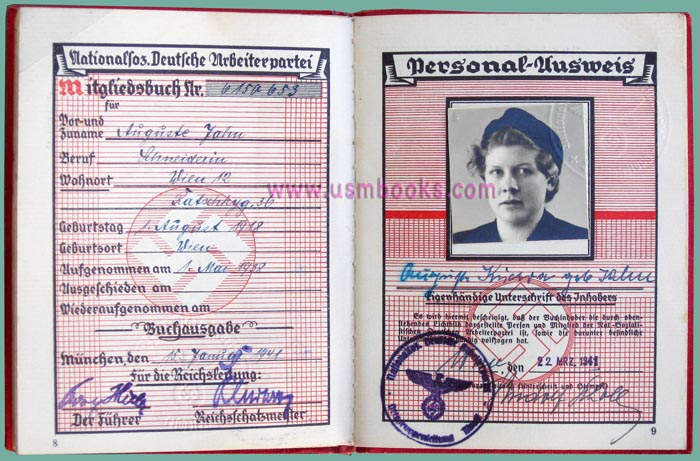 Nationalsoz. Deutsche Arbeiterpartei
Mitgliedsbuch Nr. 6150653
für
Vor- und
Zuname Auguste Jahn
Beruf Schneiderin
Wohnort Wien 12
36
Geburtstag 1. August 1918
Geburtsort Wien
Aufgenommen am 1. Mai 1938
Ausgeschieden am
Wiederaufgenommen am
Buchausgabe
München, den 15. Januar 1941
Für die Reichsleitung:
Der Führer Reichsschatzmeister
8
Personal-Ausweis
geb. Jahn
Eigenhändige Unterschrift des Inhabers
Es wird hiermit bescheinigt, daß der Buchinhaber die durch oben-
stehendes Lichtbild dargestellte Person und Mitglied der Nat.-Soziali-
Arbeiterpartei ist, sowie die darunter befindliche
vollzogen hat.
Wien, den 22. MRZ. 1941
(Unterschrift und Stempel)
9
www.usmbooks.com